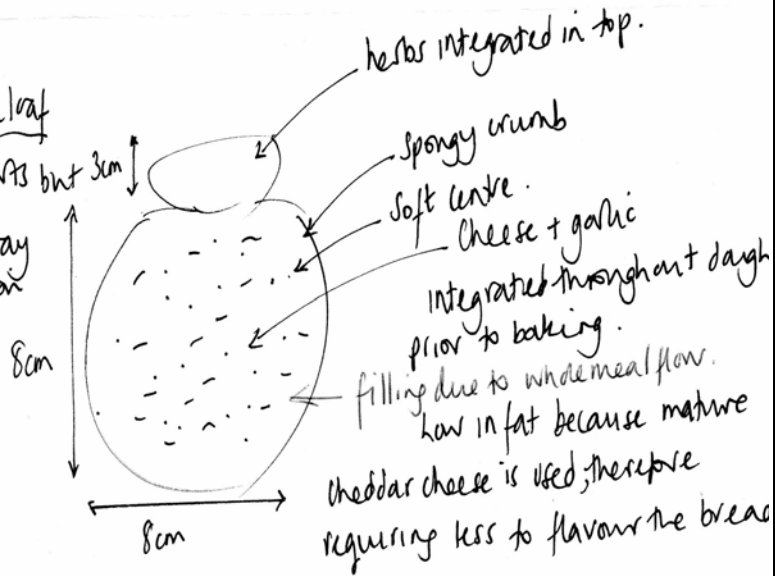 herbs integrated in top.
loaf
but 3cm
spongy crumb
soft centre.
cheese + garlic
integrated throughout dough
prior to baking.
8cm
filling due to wholemeal flour.
Low in fat because mature
cheddar cheese is used, therefore
requiring less to flavour the bread
8cm